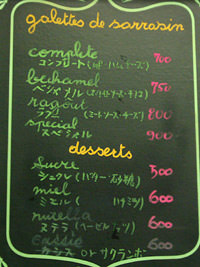 galettes de sarrasin
complete 700
コンプリート(卵・ハム・チーズ)
bechamel 750
ベシャメル(ホワイトソース・チーズ)
ragout 800
ラグー(ミートソース・チーズ)
special 900
スペシャル
desserts
Sucre 500
シュクレ(バター・砂糖)
miel 600
ミエル(ハチミツ)
nutella 600
ヌテラ(ヘーゼルナッツ)
Cassis 600
カシス or サクランボ